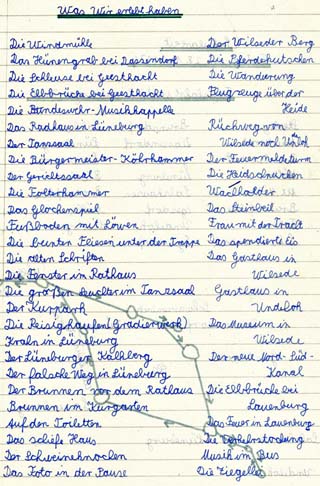 Was Wir erlebt haben
Die Windmühle
Das Hünengrab bei Dassendorf
Die Schleuse bei Geesthacht
Die Elbbrücke bei Geesthacht
Die Bundeswehr-Musikkappelle
Das Radhaus in Lüneburg
Der Tanzsaal
Die Bürgermeister-Körkammer
Der Gerichtssaal
Die Folterkammer
Das Glockenspiel
Fußboden mit Löwen
Die bunten Fliesen unter der Treppe
Die alten Schriften
Die Fenster im Rathaus
Die großen Leuchter im Tanzsaal
Der Kurpark
Die Reisighaufen (Gradierwerk)
Kran in Lüneburg
Der Lüneburger Kalkberg
Der falsche Weg in Lüneburg
Der Brunnen vor dem Rathaus
Brunnen im Kurgarten
Auf den Toiletten
Das schiefe Haus
Der Schweineknochen
Das Foto in der Pause
Der Wilseder Berg
Die Pferdekutschen
Die Wanderung
Flugzeuge über der
Heide
Rückweg von
Wilsede nach Undeloh
Der Feuermeldeturm
Die Heidschnucken
Wacholder
Das Steinbeil
Frau mit der Tracht
Das spendierte Eis
Das Gasthaus in
Wilsede
Gasthaus in
Undeloh
Das Museum in
Wilsede
Der neue Nord-Süd-
Kanal
Die Elbbrücke bei
Lauenburg
Das Feuer in Lauenburg
Die Verkehrsstockung
Musik im Bus
Die Ziegelei